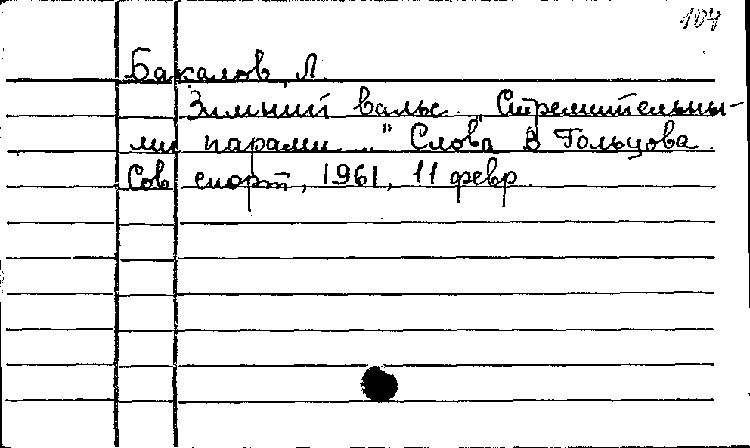 104
Бакалов, Л.
Зимний вальс. "Стремительны-
ми парами..." Слова В. Гольцова.
Сов. спорт, 1961, 11 февр.